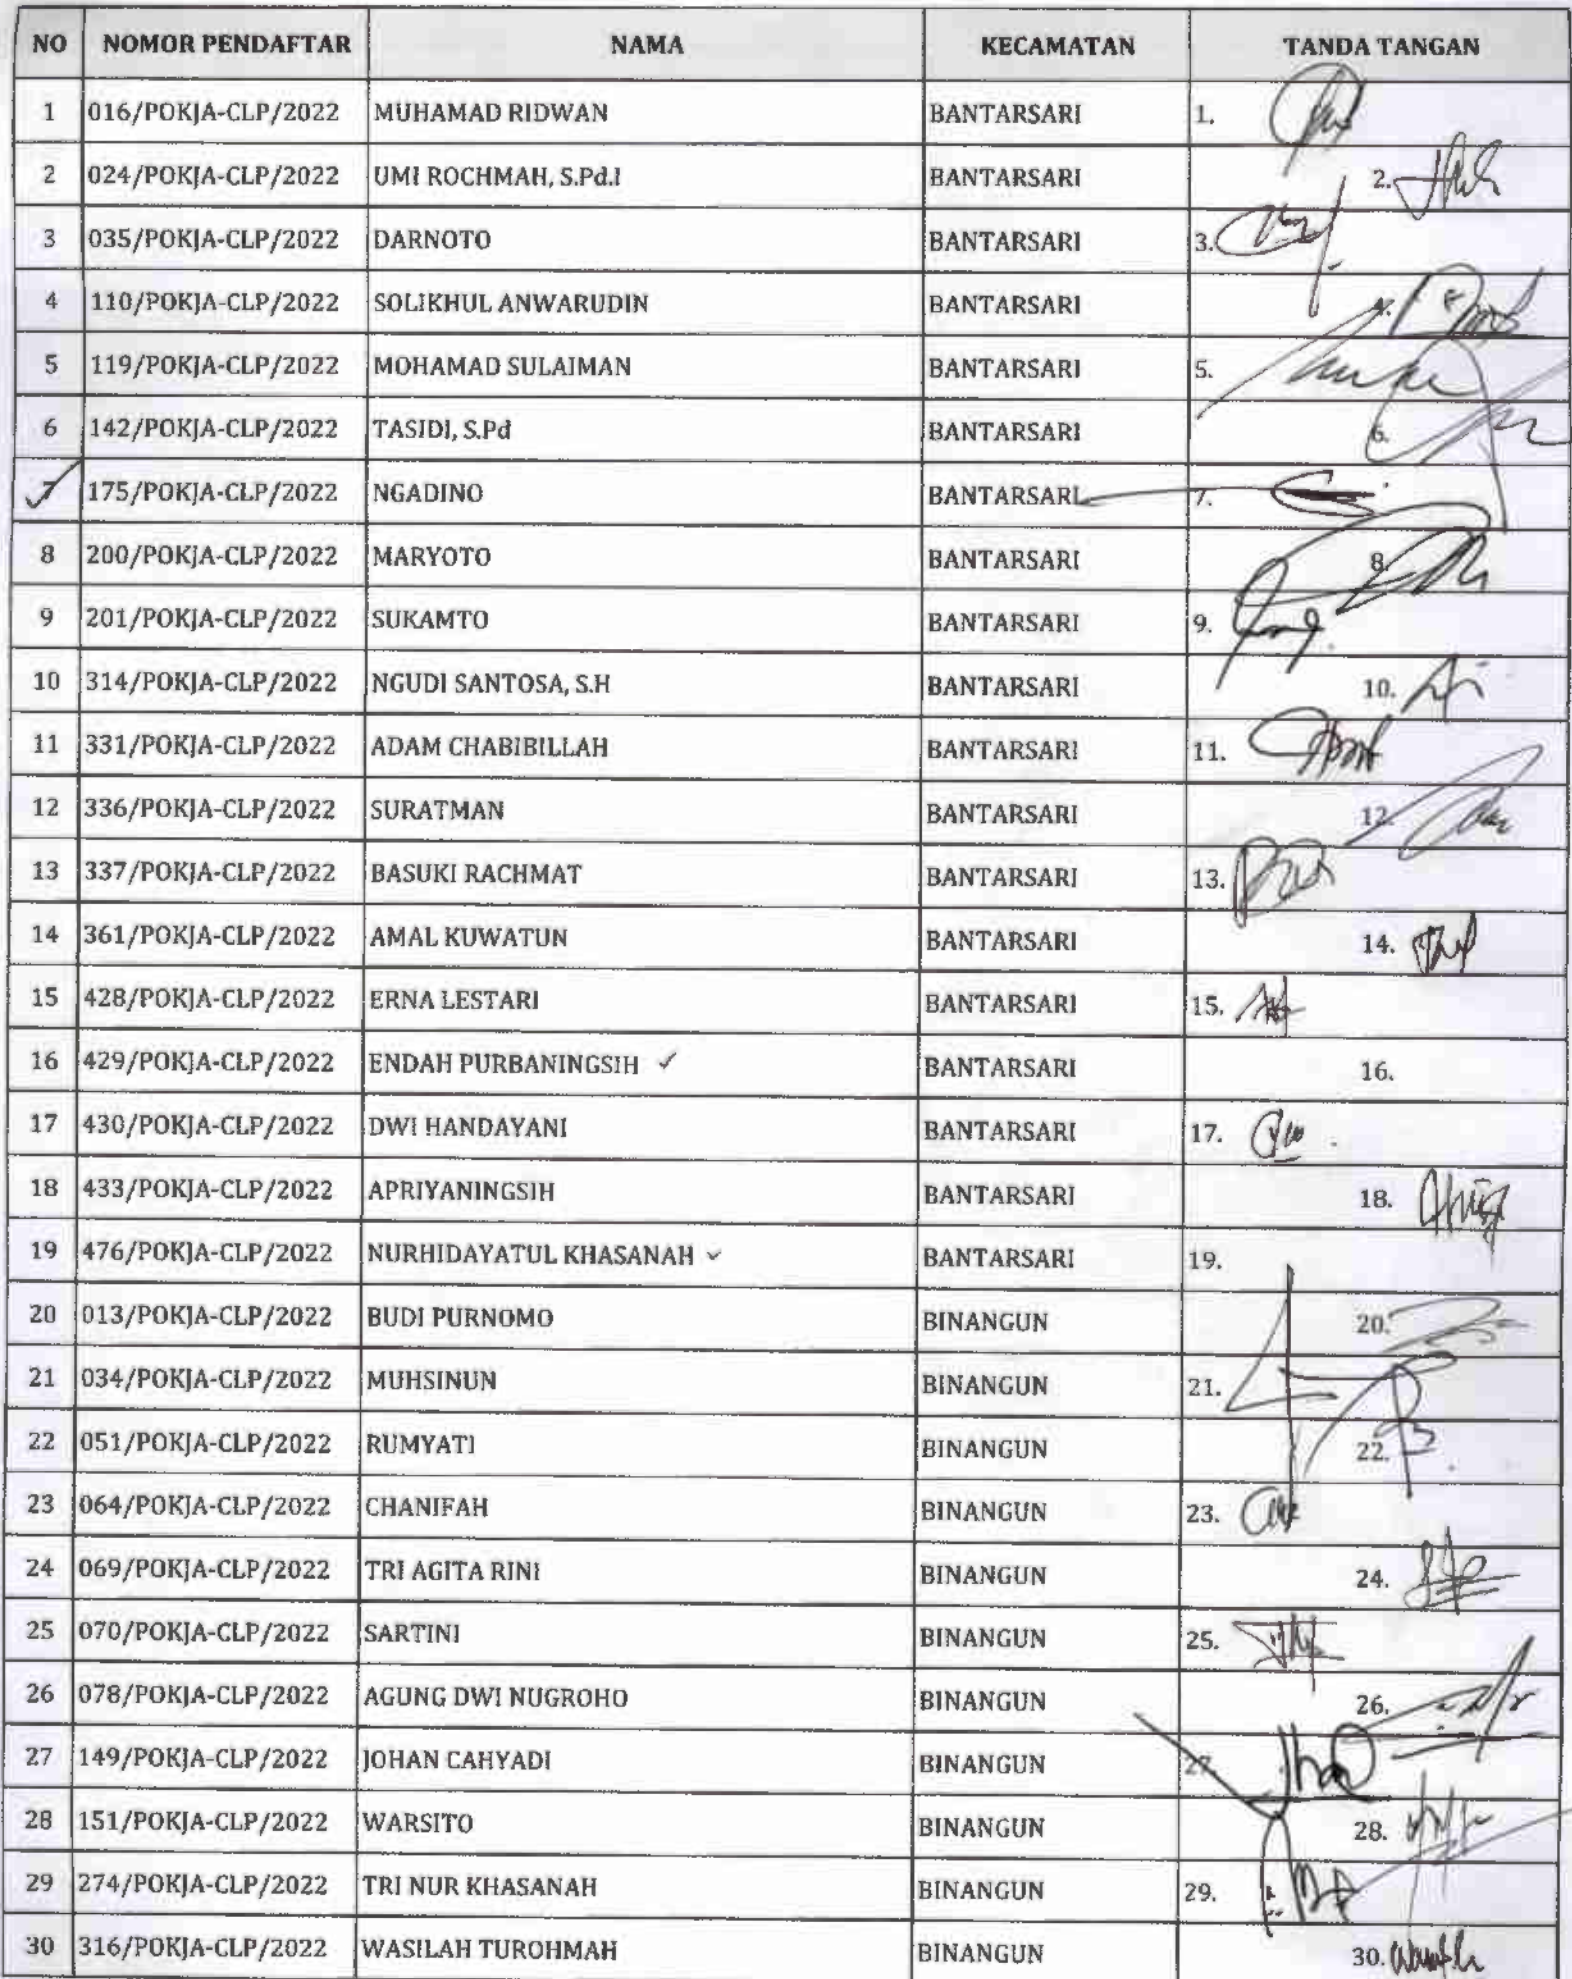 NO NOMOR PENDAFTAR NAMA KECAMATAN TANDA TANGAN
1 016/POKJA-CLP/2022 MUHAMAD RIDWAN BANTARSARI 1.
2 024/POKJA-CLP/2022 UMI ROCHMAH, S.Pd.I BANTARSARI 2.
3 035/POKJA-CLP/2022 DARNOTO BANTARSARI 3.
4 110/POKJA-CLP/2022 SOLIKHUL ANWARUDIN BANTARSARI 4.
5 119/POKJA-CLP/2022 MOHAMAD SULAIMAN BANTARSARI 5.
6 142/POKJA-CLP/2022 TASIDI, S.Pd BANTARSARI 6.
7 175/POKJA-CLP/2022 NGADINO BANTARSARI 7.
8 200/POKJA-CLP/2022 MARYOTO BANTARSARI 8.
9 201/POKJA-CLP/2022 SUKAMTO BANTARSARI 9.
10 314/POKJA-CLP/2022 NGUDI SANTOSA, S.H BANTARSARI 10.
11 331/POKJA-CLP/2022 ADAM CHABIBILLAH BANTARSARI 11.
12 336/POKJA-CLP/2022 SURATMAN BANTARSARI 12.
13 337/POKJA-CLP/2022 BASUKI RACHMAT BANTARSARI 13.
14 361/POKJA-CLP/2022 AMAL KUWATUN BANTARSARI 14.
15 428/POKJA-CLP/2022 ERNA LESTARI BANTARSARI 15.
16 429/POKJA-CLP/2022 ENDAH PURBANINGSIH ✓ BANTARSARI 16.
17 430/POKJA-CLP/2022 DWI HANDAYANI BANTARSARI 17.
18 433/POKJA-CLP/2022 APRIYANINGSIH BANTARSARI 18.
19 476/POKJA-CLP/2022 NURHIDAYATUL KHASANAH ✓ BANTARSARI 19.
20 013/POKJA-CLP/2022 BUDI PURNOMO BINANGUN 20.
21 034/POKJA-CLP/2022 MUHSINUN BINANGUN 21.
22 051/POKJA-CLP/2022 RUMYATI BINANGUN 22.
23 064/POKJA-CLP/2022 CHANIFAH BINANGUN 23.
24 069/POKJA-CLP/2022 TRI AGITA RINI BINANGUN 24.
25 070/POKJA-CLP/2022 SARTINI BINANGUN 25.
26 078/POKJA-CLP/2022 AGUNG DWI NUGROHO BINANGUN 26.
27 149/POKJA-CLP/2022 JOHAN CAHYADI BINANGUN 27.
28 151/POKJA-CLP/2022 WARSITO BINANGUN 28.
29 274/POKJA-CLP/2022 TRI NUR KHASANAH BINANGUN 29.
30 316/POKJA-CLP/2022 WASILAH TUROHMAH BINANGUN 30.